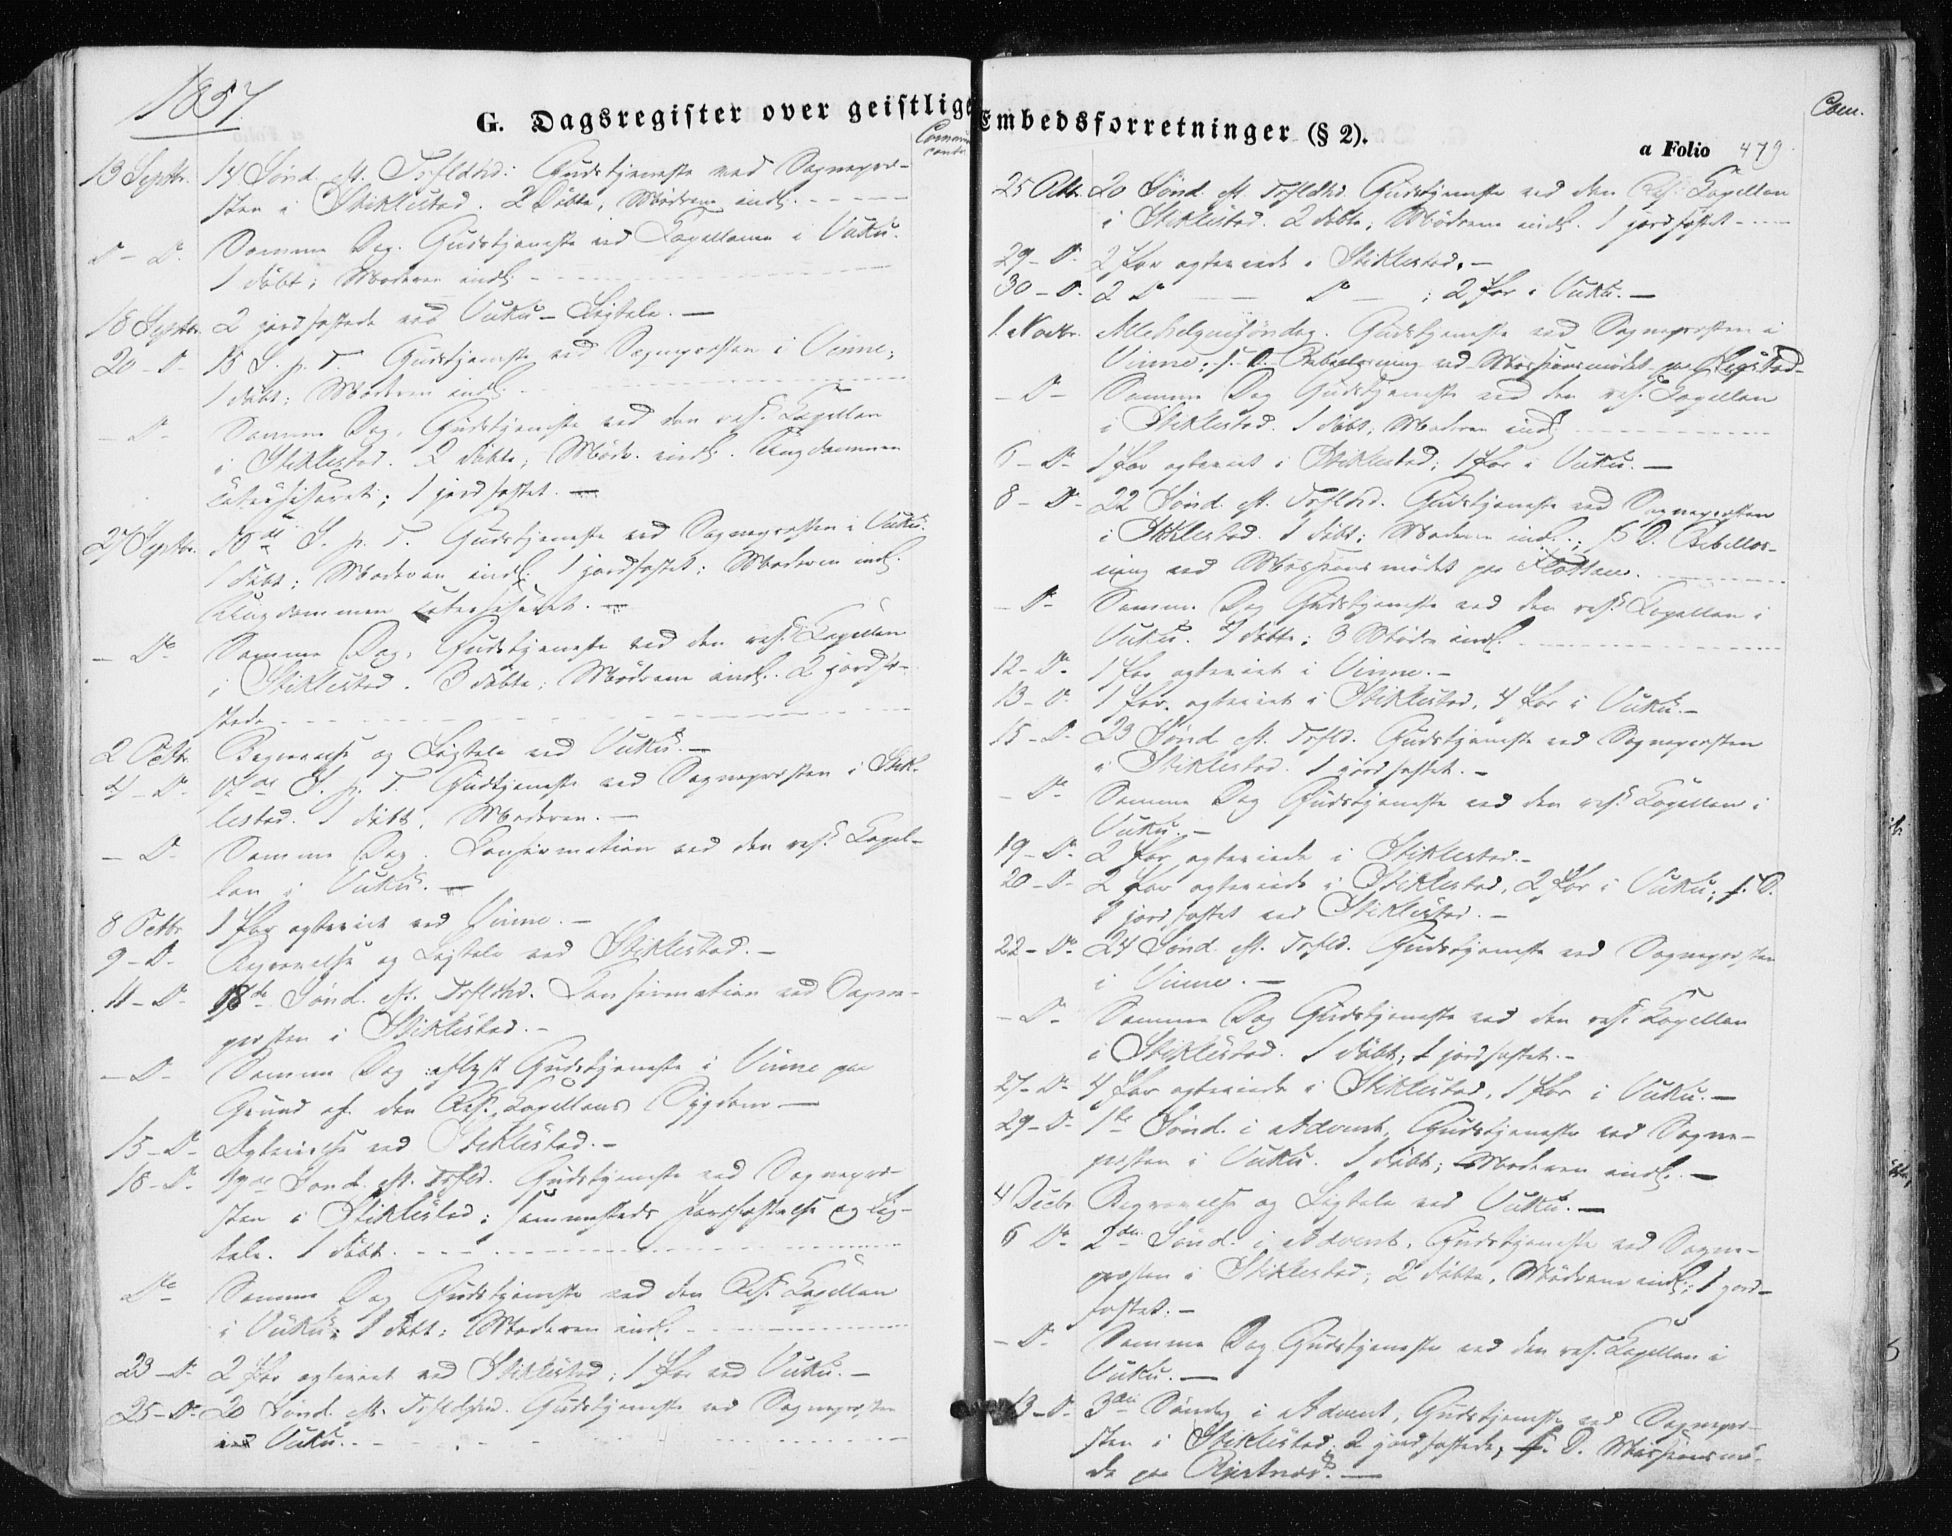 1857.
G. Dagsregister over geistlige
Communicanter
13 Septbr. 14 Sønd. eft. Trfldhd: Gudstjeneste ved Sognepræ-
sten i Stiklestad. 2 Döbte, Mödrene indl.
D - D. Samme Dag. Gudstjeneste ved Capellanen i Vuku.
1 döbt; Moderen indl.
18 Septbr. 2 jordfæstede ved Vuku - Ligtale. —
20 - D. 15 S. p. T. Gudstjeneste ved Sognepræsten i Vinne;
1 döbt; Moderen indl.
- D - Samme Dag, Gudstjeneste ved den res. Capellan
i Stiklestad. 2 döbte; Mödr. indl. Ungdommen
catechiseret; 1 jordfæstet. —
27 Septbr. 16de S. p. T. Gudstjeneste ved Sognepræsten i Vuku.
1 döbt; Moderen indl. 1 jordfæstet; Moderen indl.
Ungdommen catechiseret. —
- Do Samme Dag, Gudstjeneste ved den res. Capellan
i Stiklestad. 3 döbte; Mödrene indl. 2 jordfæ-
stede
2 Octbr. Begravelse og Ligtale ved Vuku. —
4 - D. 17de S. p. T. Gudstjeneste ved Sognepræsten i Stik-
lestad. 1 döbt, Moderen. —
- D - Samme Dag. Confirmation ved den res. Capel-
lan i Vuku. —
8 Octbr 1 Par ægteviet ved Vinne. —
9 - D - Begravelse og Ligtale ved Stiklestad. —
11 - D. 18de Sønd. eft. Trfldhd. Confirmation ved Sogne-
præsten i Stiklestad. -
- D - Samme Dag aflyst Gudstjeneste i Vinne paa
Grund af den Res. Capellans Sygdom —
15 - D - Ægtevielse ved Stiklestad. -
18 - D. 19de Sønd. eft. Trfld. Gudstjeneste ved Sognepræ-
sten i Stiklestad; sammesteds Jordfæstelse og Lig-
tale. 1 döbt.
Do Samme Dag Gudstjeneste ved den Res. Capellan
i Vuku; 1 döbt; Moderen indl.
23 - D. 2 Par ægteviet ved Stiklestad; 1 Par ved Vuku. —
25 - D. 20 Sønd. eft. Trfldhd. Gudstjeneste ved Sognepræsten
ved Vuku.
Embedsforretninger (§ 2).
a Folio 479.
Com.
25 Octbr. 20 Sønd. eft. Trfldhd. Gudstjeneste ved den Res. Capellan
i Stiklestad. 2 döbte, Mödrene indl. 1 jordfæstet
29 - D. 2 Par ægteviede i Stiklestad. —
30 - D. 2 Do — Do — ; 2 Par i Vuku. —
1. Novbr. Allehelgensöndag. Gudstjeneste ved Sognepræsten i
Vinne; s. D. Bibellæsning ved Missionsmödet paa
- D - Samme Dag Gudstjeneste ved den res. Capellan
i Stiklestad. 1 döbt; Moderen indl.
6 - Do 1 Par ægteviet i Stiklestad; 1 Par i Vuku. —
8 - Do 22 Sønd. eft. Trfldhd. Gudstjeneste ved Sognepræsten
i Stiklestad. 1 döbt; Moderen indl.; s. D. Bibellæs-
ning ved Missionsmödet paa
- Do Samme Dag Gudstjeneste ved den res. Capellan i
Vuku. döbte; 3 Mödre indl.
12 - Do 1 Par ægteviet i Vinne. —
13 - D. 1 Par ægteviet i Stiklestad, 4 Par i Vuku. —
15 - D. 23 Sønd. eft. Trfld. Gudstjeneste ved Sognepræsten
i Stiklestad. 1 jordfæstet. -
- Do Samme Dag Gudstjeneste ved den res. Capellan i
Vuku. —
19 - D. 2 Par ægteviede i Stiklestad. -
20 - D. 2 Par ægteviede i Stiklestad, 2 Par i Vuku; s. D.
1 jordfæstet ved Stiklestad. -
22 - Do 24 Sønd. eft. Trfld. Gudstjeneste ved Sognepræsten
i Vinne. —
- D. Samme Dag Gudstjeneste ved den res. Capellan
i Stiklestad. 1 döbt; 1 jordfæstet. -
27 - Do 4 Par ægteviede i Stiklestad, 1 Par i Vuku. —
29 - D. 1ste Sønd. i Advent, Gudstjeneste ved Sogne-
præsten i Vuku. 1 döbt; Moderen indl. —
4 Decbr. Begravelse og Ligtale ved Vuku. —
6 Do 2den Sønd. i Advent, Gudstjeneste ved Sogne-
præsten i Stiklestad; 2 döbte, Mödrene indl.; 1 jord-
fæstet. -
- D. Samme Dag Gudstjeneste ved den res. Capellan i
Vuku. —
13 - D. 3die Söndag i Advent, Gudstjeneste ved Sognepræ-
sten i Stiklestad; 2 jordfæstede; s. D. Missionsmö-
de paa —